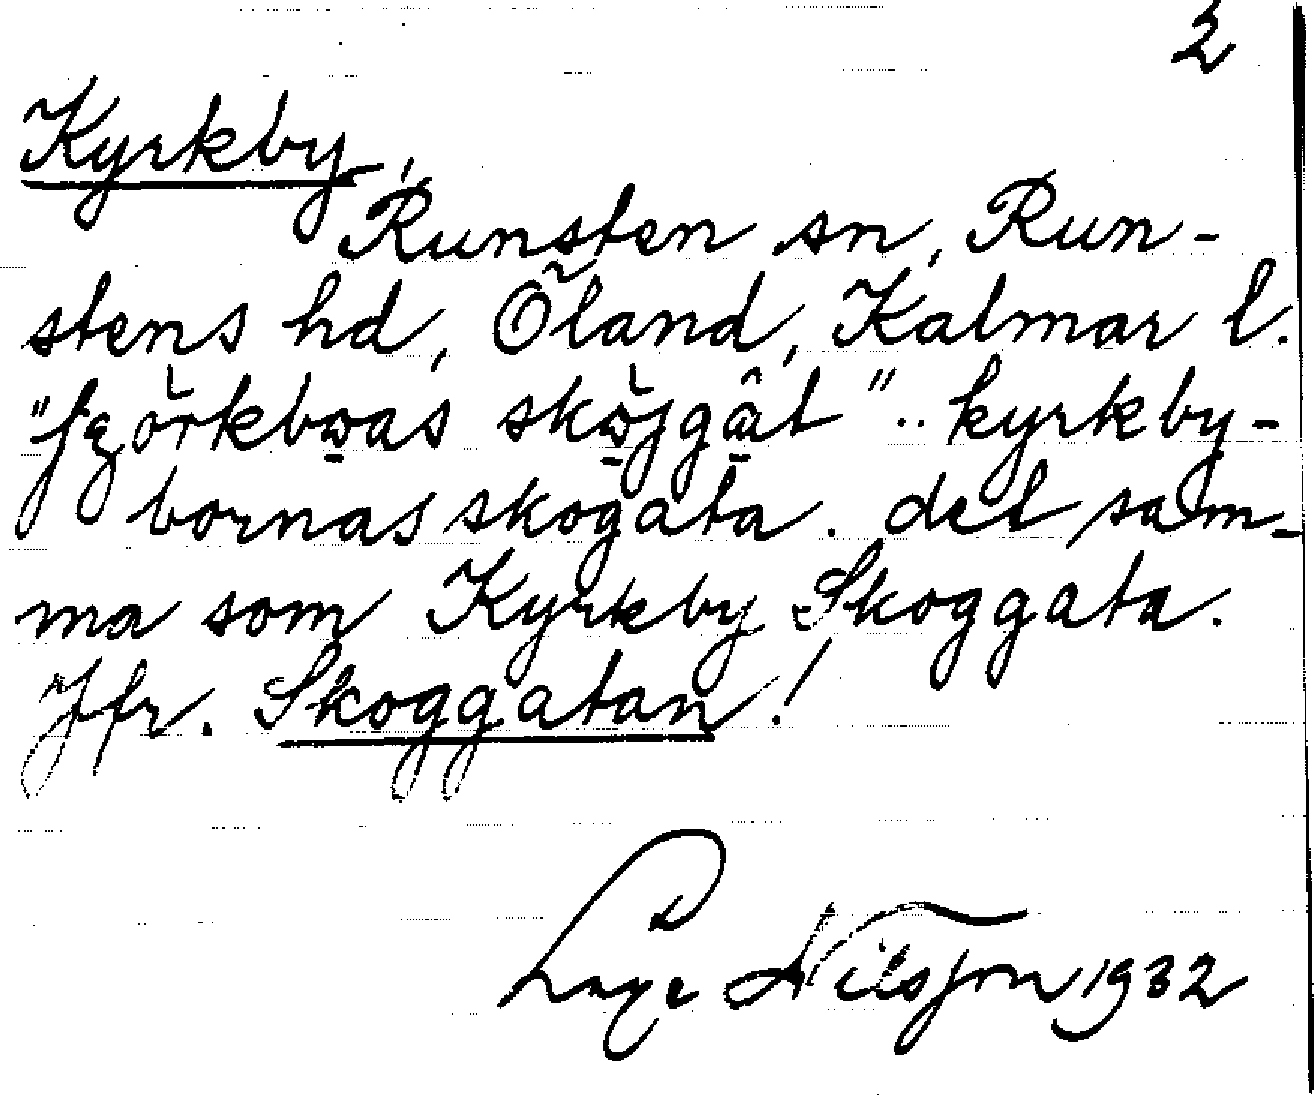 2
Kyrkby,
Runsten sn, Run-
stens hd, Öland, Kalmar l.
kyrkby-
bornas skogata. det sam-
ma som Kyrkby Skoggata.
Jfr. Skoggatan!
Lage Nilsson 1932